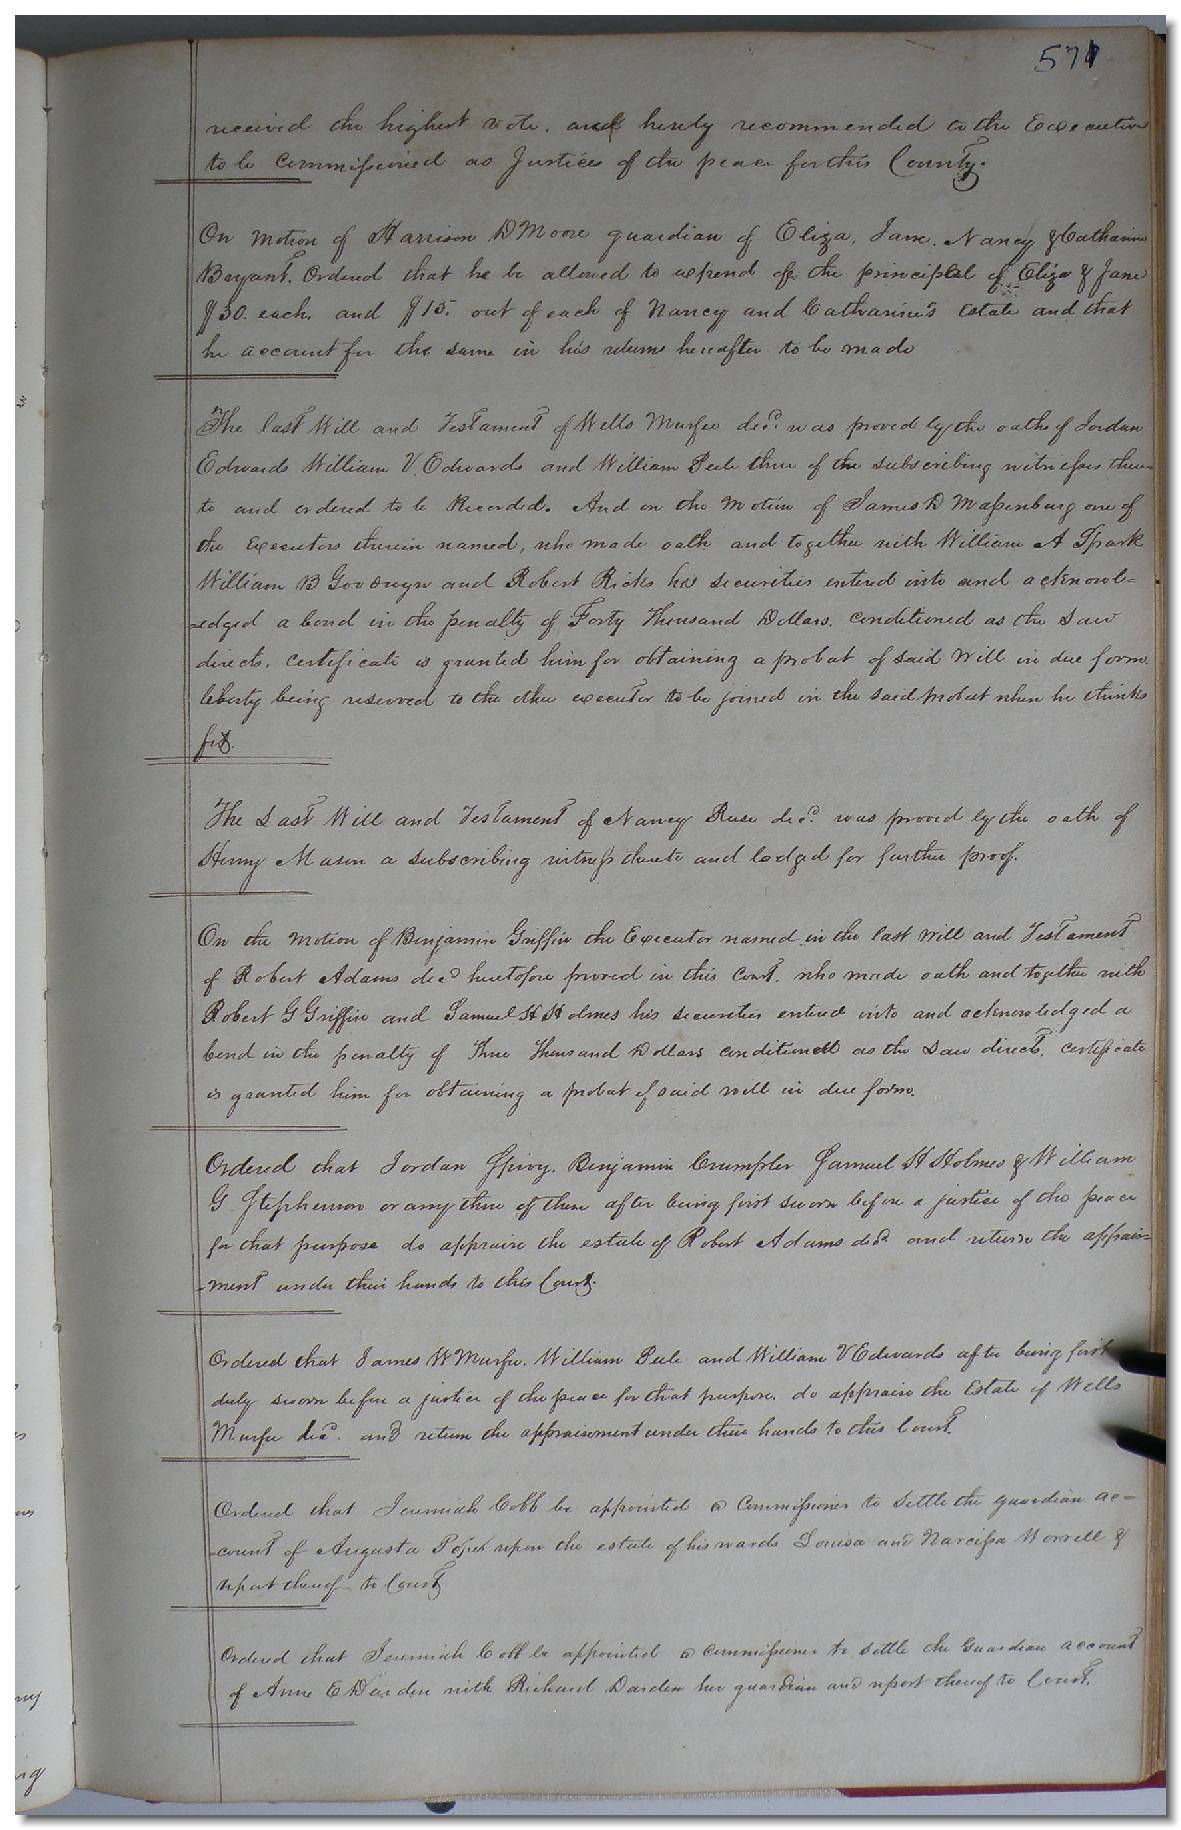 571
received the highest vote. and hereby recommended to the Executive
to be Commissioned as Justices of the peace for this County.
On motion of Harrison D Moore guardian of Eliza, Jane, Nancy & Catharine
Bryant. Ordered that he be allowed to expend of the principal of Eliza & Jane
$30. each. and $15. out of each of Nancy and Catharine's Estate and that
he account for the same in his returns hereafter to be made
The last Will and Testament of Wells Murfee decd. was proved by the oaths of Jordan
Edwards William V. Edwards and William Peele three of the subscribing witnesses there-
to and ordered to be Recorded. And on the Motion of James D Massenburg one of
the Executors therein named, who made oath and together with William A Spark
William B Goodwyn and Robert Ricks his securities entered into and acknowl=
=edged a bond in the penalty of Forty Thousand Dollars. conditioned as the Law
directs. certificate is granted him for obtaining a probat of said Will in due form.
liberty being reserved to the other executor to be joined in the said probat when he thinks
fit.
The Last Will and Testament of Nancy Rase decd. was proved by the oath of
Henry Mason a subscribing witness thereto and lodged for further proof.
On the Motion of Benjamin Griffin the Executor named in the last Will and Testament
of Robert Adams decd heretofore proved in this Court. who made oath and together with
Robert G Griffin and Samuel H Holmes his securities entered into and acknowledged a
bond in the penalty of Three Thousand Dollars conditioned as the Law directs. certificate
is granted him for obtaining a probat of said will in due form.
Ordered that Jordan Spivy. Benjamin Crumpler Samuel H Holmes & William
G Stephenson or any three of them after being first sworn before a justice of the peace
for that purpose do appraise the estate of Robert Adams decd and return the apprais=
-ment under their hands to this Court.
Ordered that James W Murfee. William Peele and William V Edwards after being first
duly sworn before a justice of the peace for that purpose. do appraise the Estate of Wells
Murfee decd. and return the appraisement under their hands to this Court.
Ordered that Jeremiah Cobb be appointed a Commissioner to settle the guardian ac=
-count of Augusta upon the estate of his wards Louisa and Narcissa Worrell &
report thereof to Court
Ordered that Jeremiah Cobb be appointed a commissioner to settle the Guardian account
of Anne E Darden with Richard Darden her guardian and report thereof to Court.